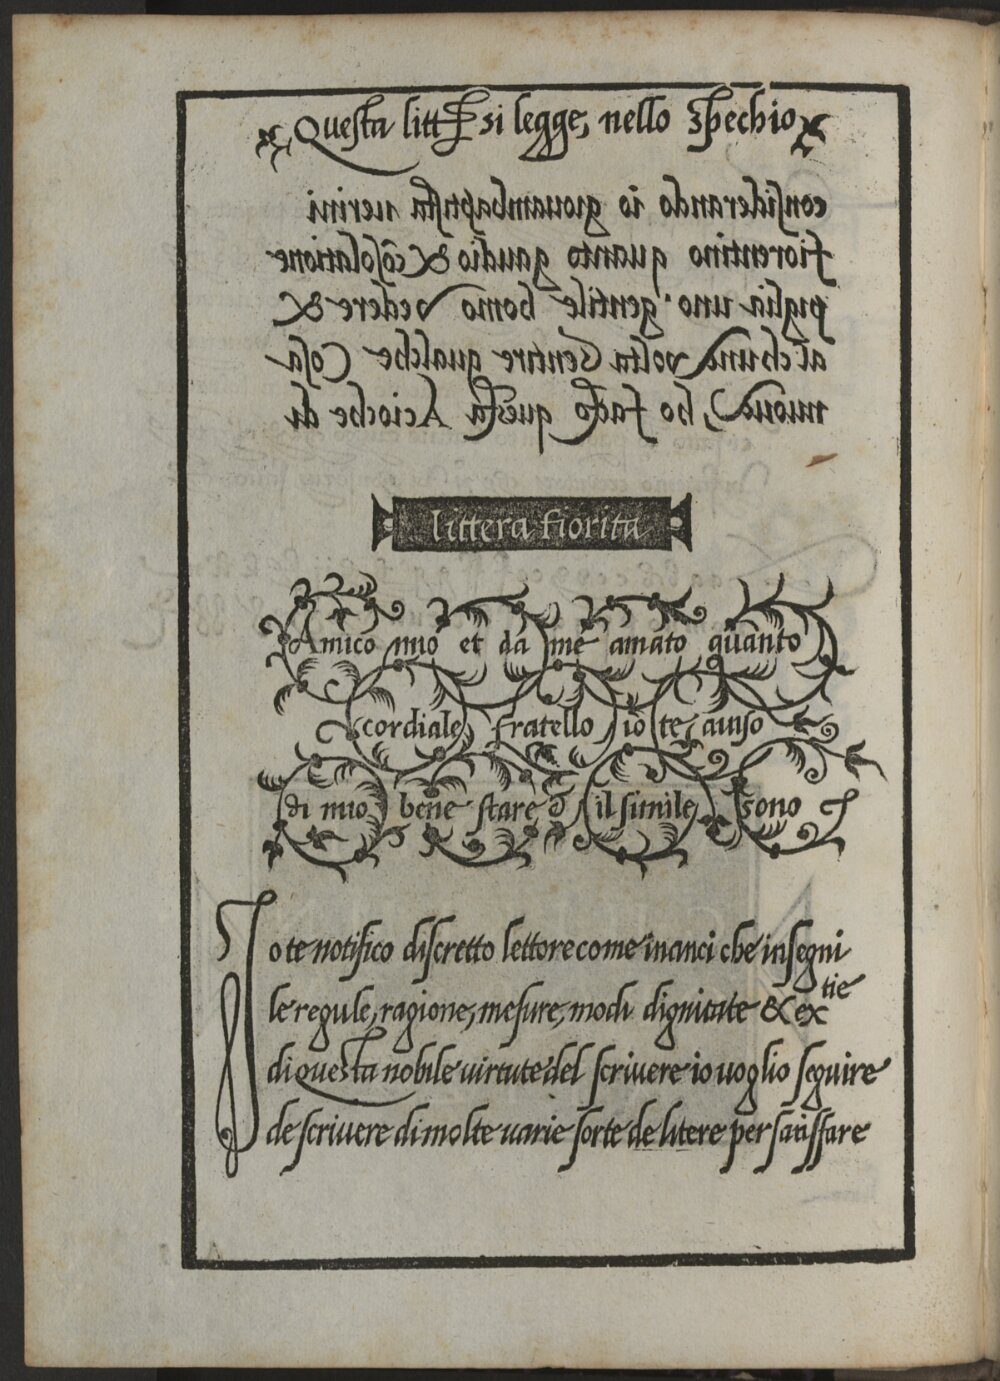 Questa litt̄ si legge, nello Specchio
considerando io giouambaptista uerini
fiorentino quanto gaudio & cōsolatione
piglia uno gentile homo vedere &
alchune volta Sentire qualche Cosa
nuoue, ho facto questa Acioche di
littera fiorita
Amico mio et da me amato quanto
cordiale fratello io te auiso
di mio bene stare & il simile sono
Io te notifico discretto lettore come inanci che insegni
le regule, ragione, mesure, modi dignitate & extie
di questa nobile virtute del scriuere io uoglio seguire
de scriuere di molte uarie sorte de litere per satisffare